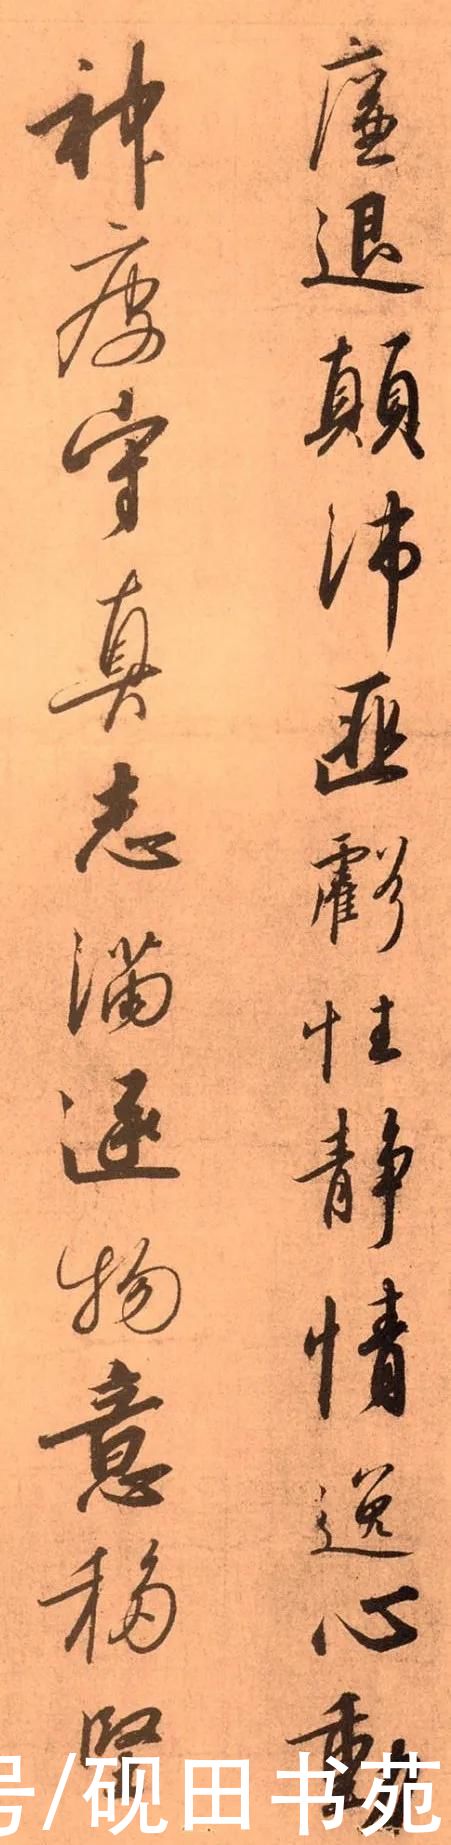 廉退顛沛匪虧性静情逸心動
神疲守真志滿逐物意移堅
号/砚田书苑